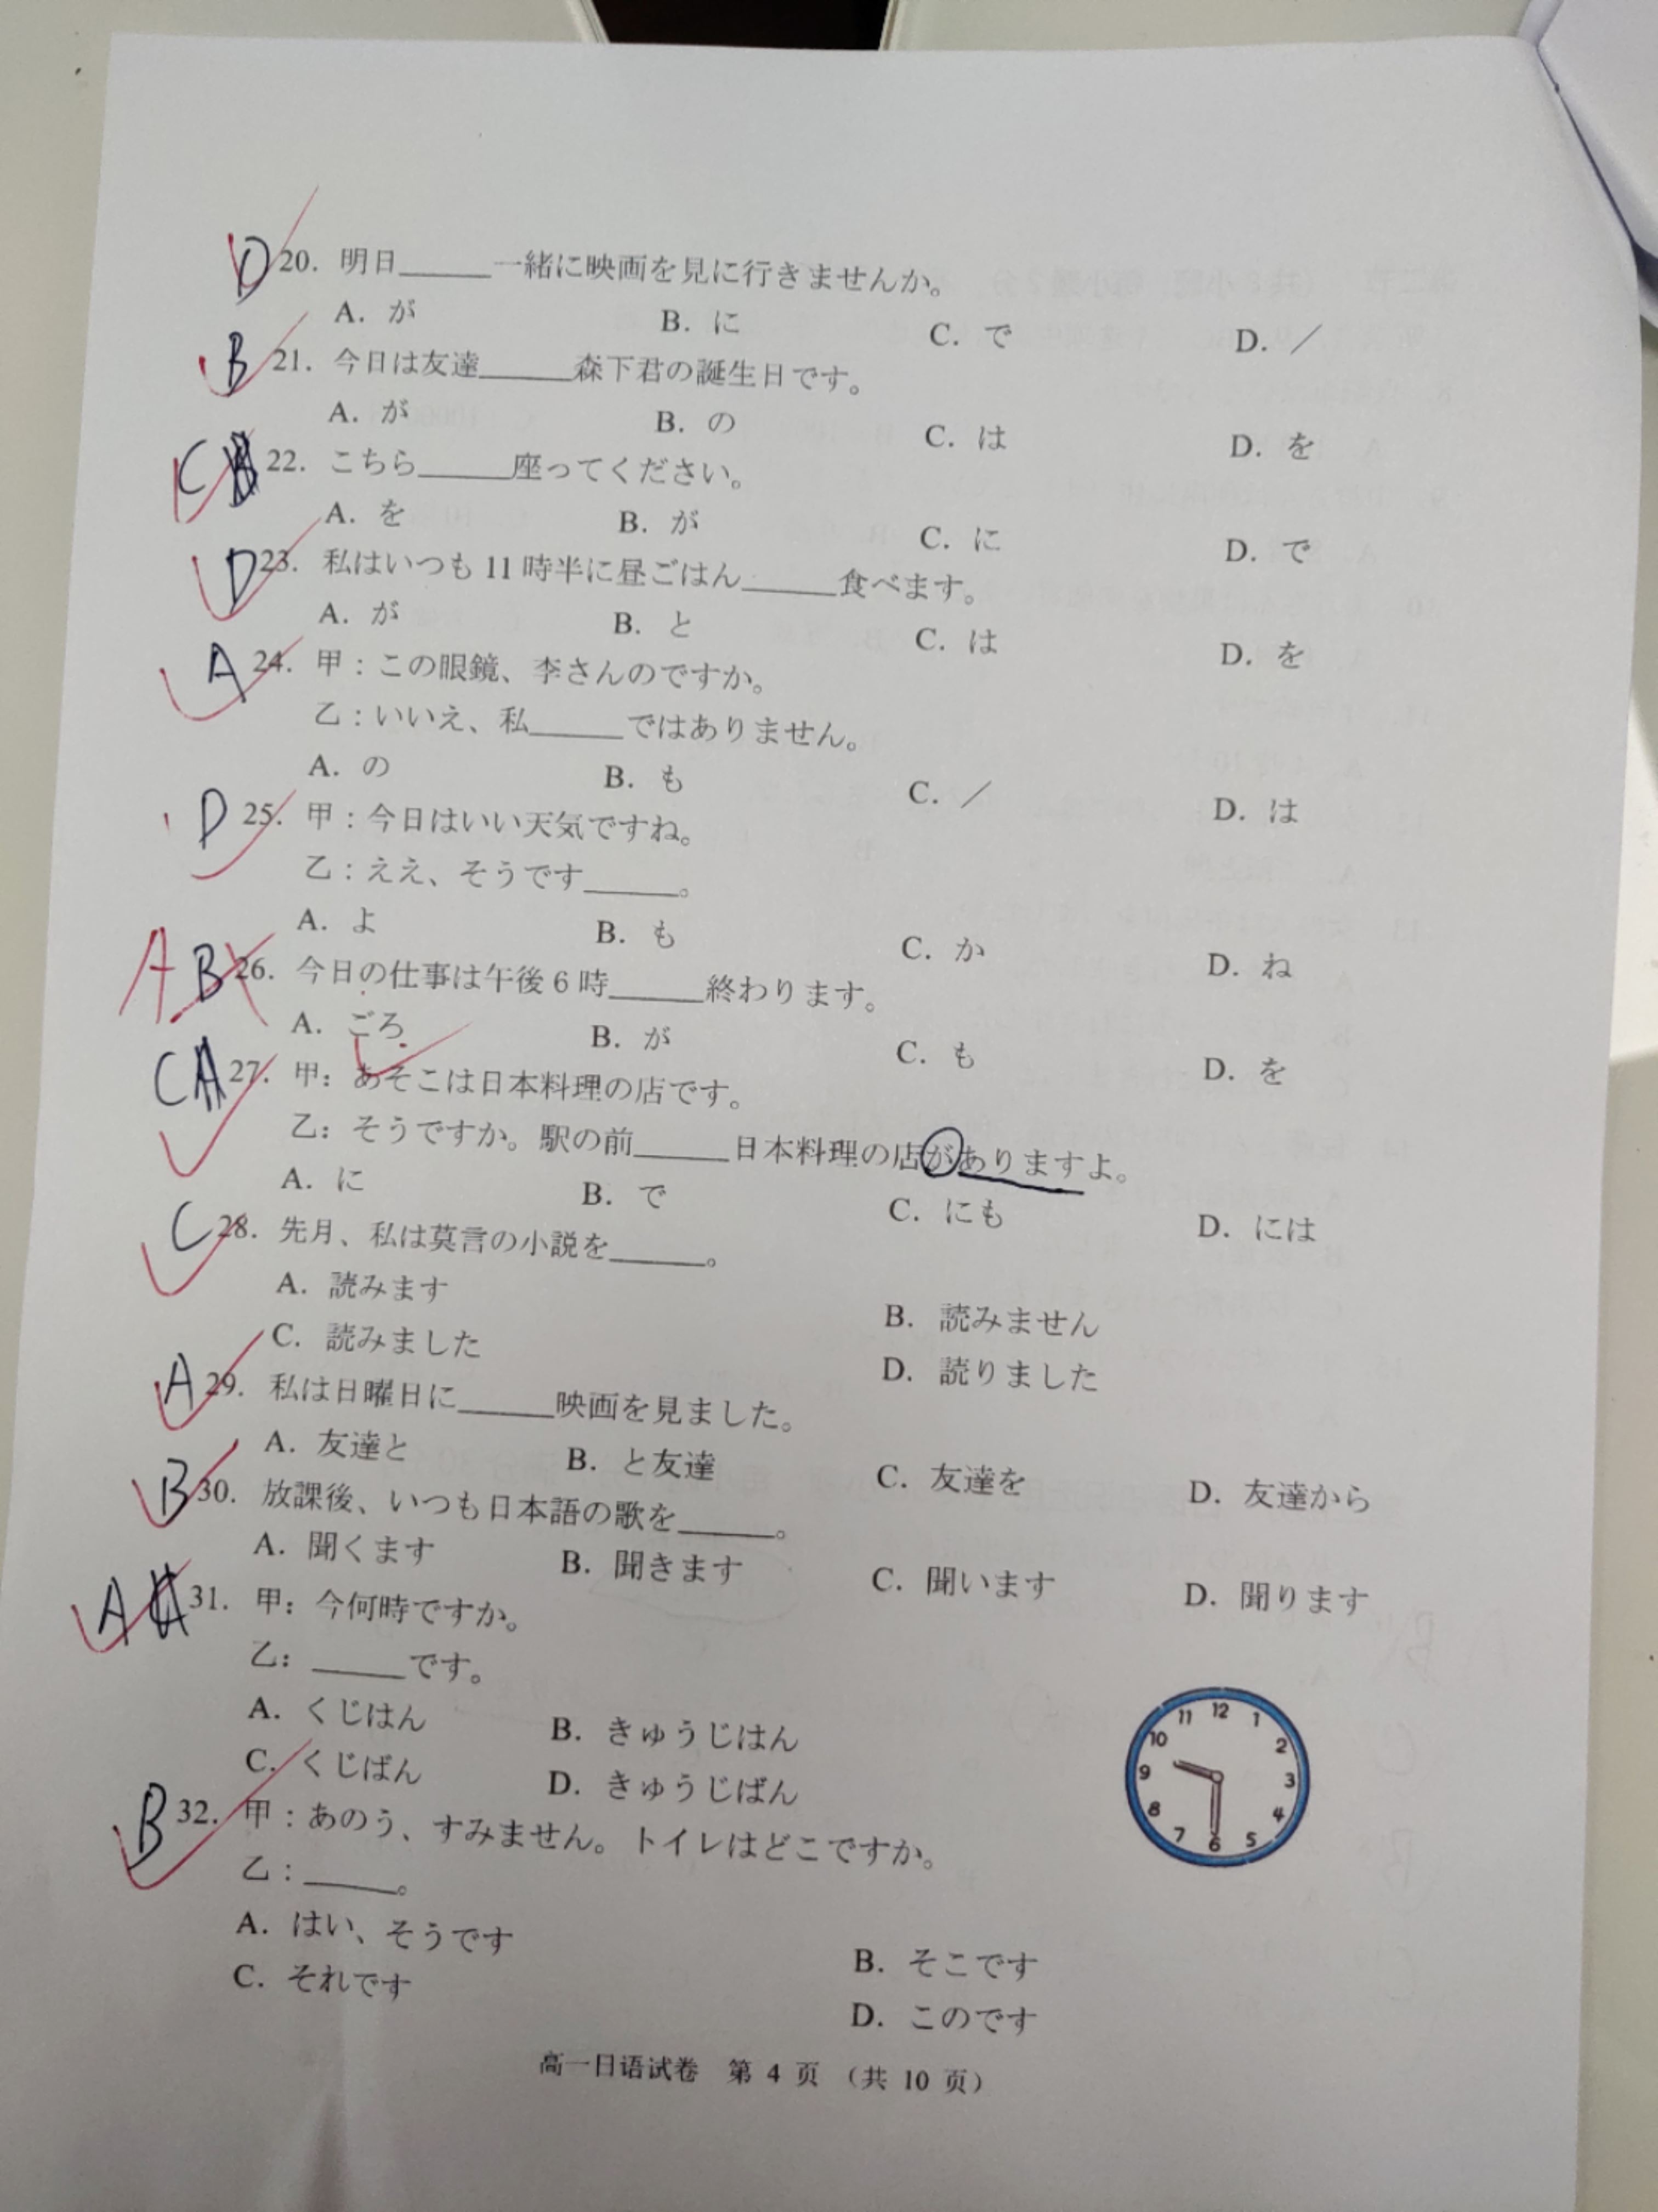 D 20. 明日______一緒に映画を見に行きませんか。
A. が B. に C. で D. ／
B 21. 今日は友達______森下君の誕生日です。
A. が B. の C. は D. を
C 22. こちら______座ってください。
A. を B. が C. に D. で
D 23. 私はいつも 11 時半に昼ごはん______食べます。
A. が B. と C. は D. を
A 24. 甲：この眼鏡、李さんのですか。
乙：いいえ、私______ではありません。
A. の B. も C. ／ D. は
D 25. 甲：今日はいい天気ですね。
乙：ええ、そうです______。
A. よ B. も C. か D. ね
A B 26. 今日の仕事は午後 6 時______終わります。
A. ごろ B. が C. も D. を
C A 27. 甲：あそこは日本料理の店です。
乙：そうですか。駅の前______日本料理の店がありますよ。
A. に B. で C. にも D. には
C 28. 先月、私は莫言の小説を______。
A. 読みます B. 読みません
C. 読みました D. 読りました
A 29. 私は日曜日に______映画を見ました。
A. 友達と B. と友達 C. 友達を D. 友達から
B 30. 放課後、いつも日本語の歌を______。
A. 聞くます B. 聞きます C. 聞います D. 聞ります
A 31. 甲：今何時ですか。
乙：______です。
A. くじはん B. きゅうじはん
C. くじばん D. きゅうじばん
12 1 2 3 4 5 6 7 8 9 10 11
B 32. 甲：あのう、すみません。トイレはどこですか。
乙：______。
A. はい、そうです B. そこです
C. それです D. このです
高一日语试卷 第 4 页 （共 10 页）